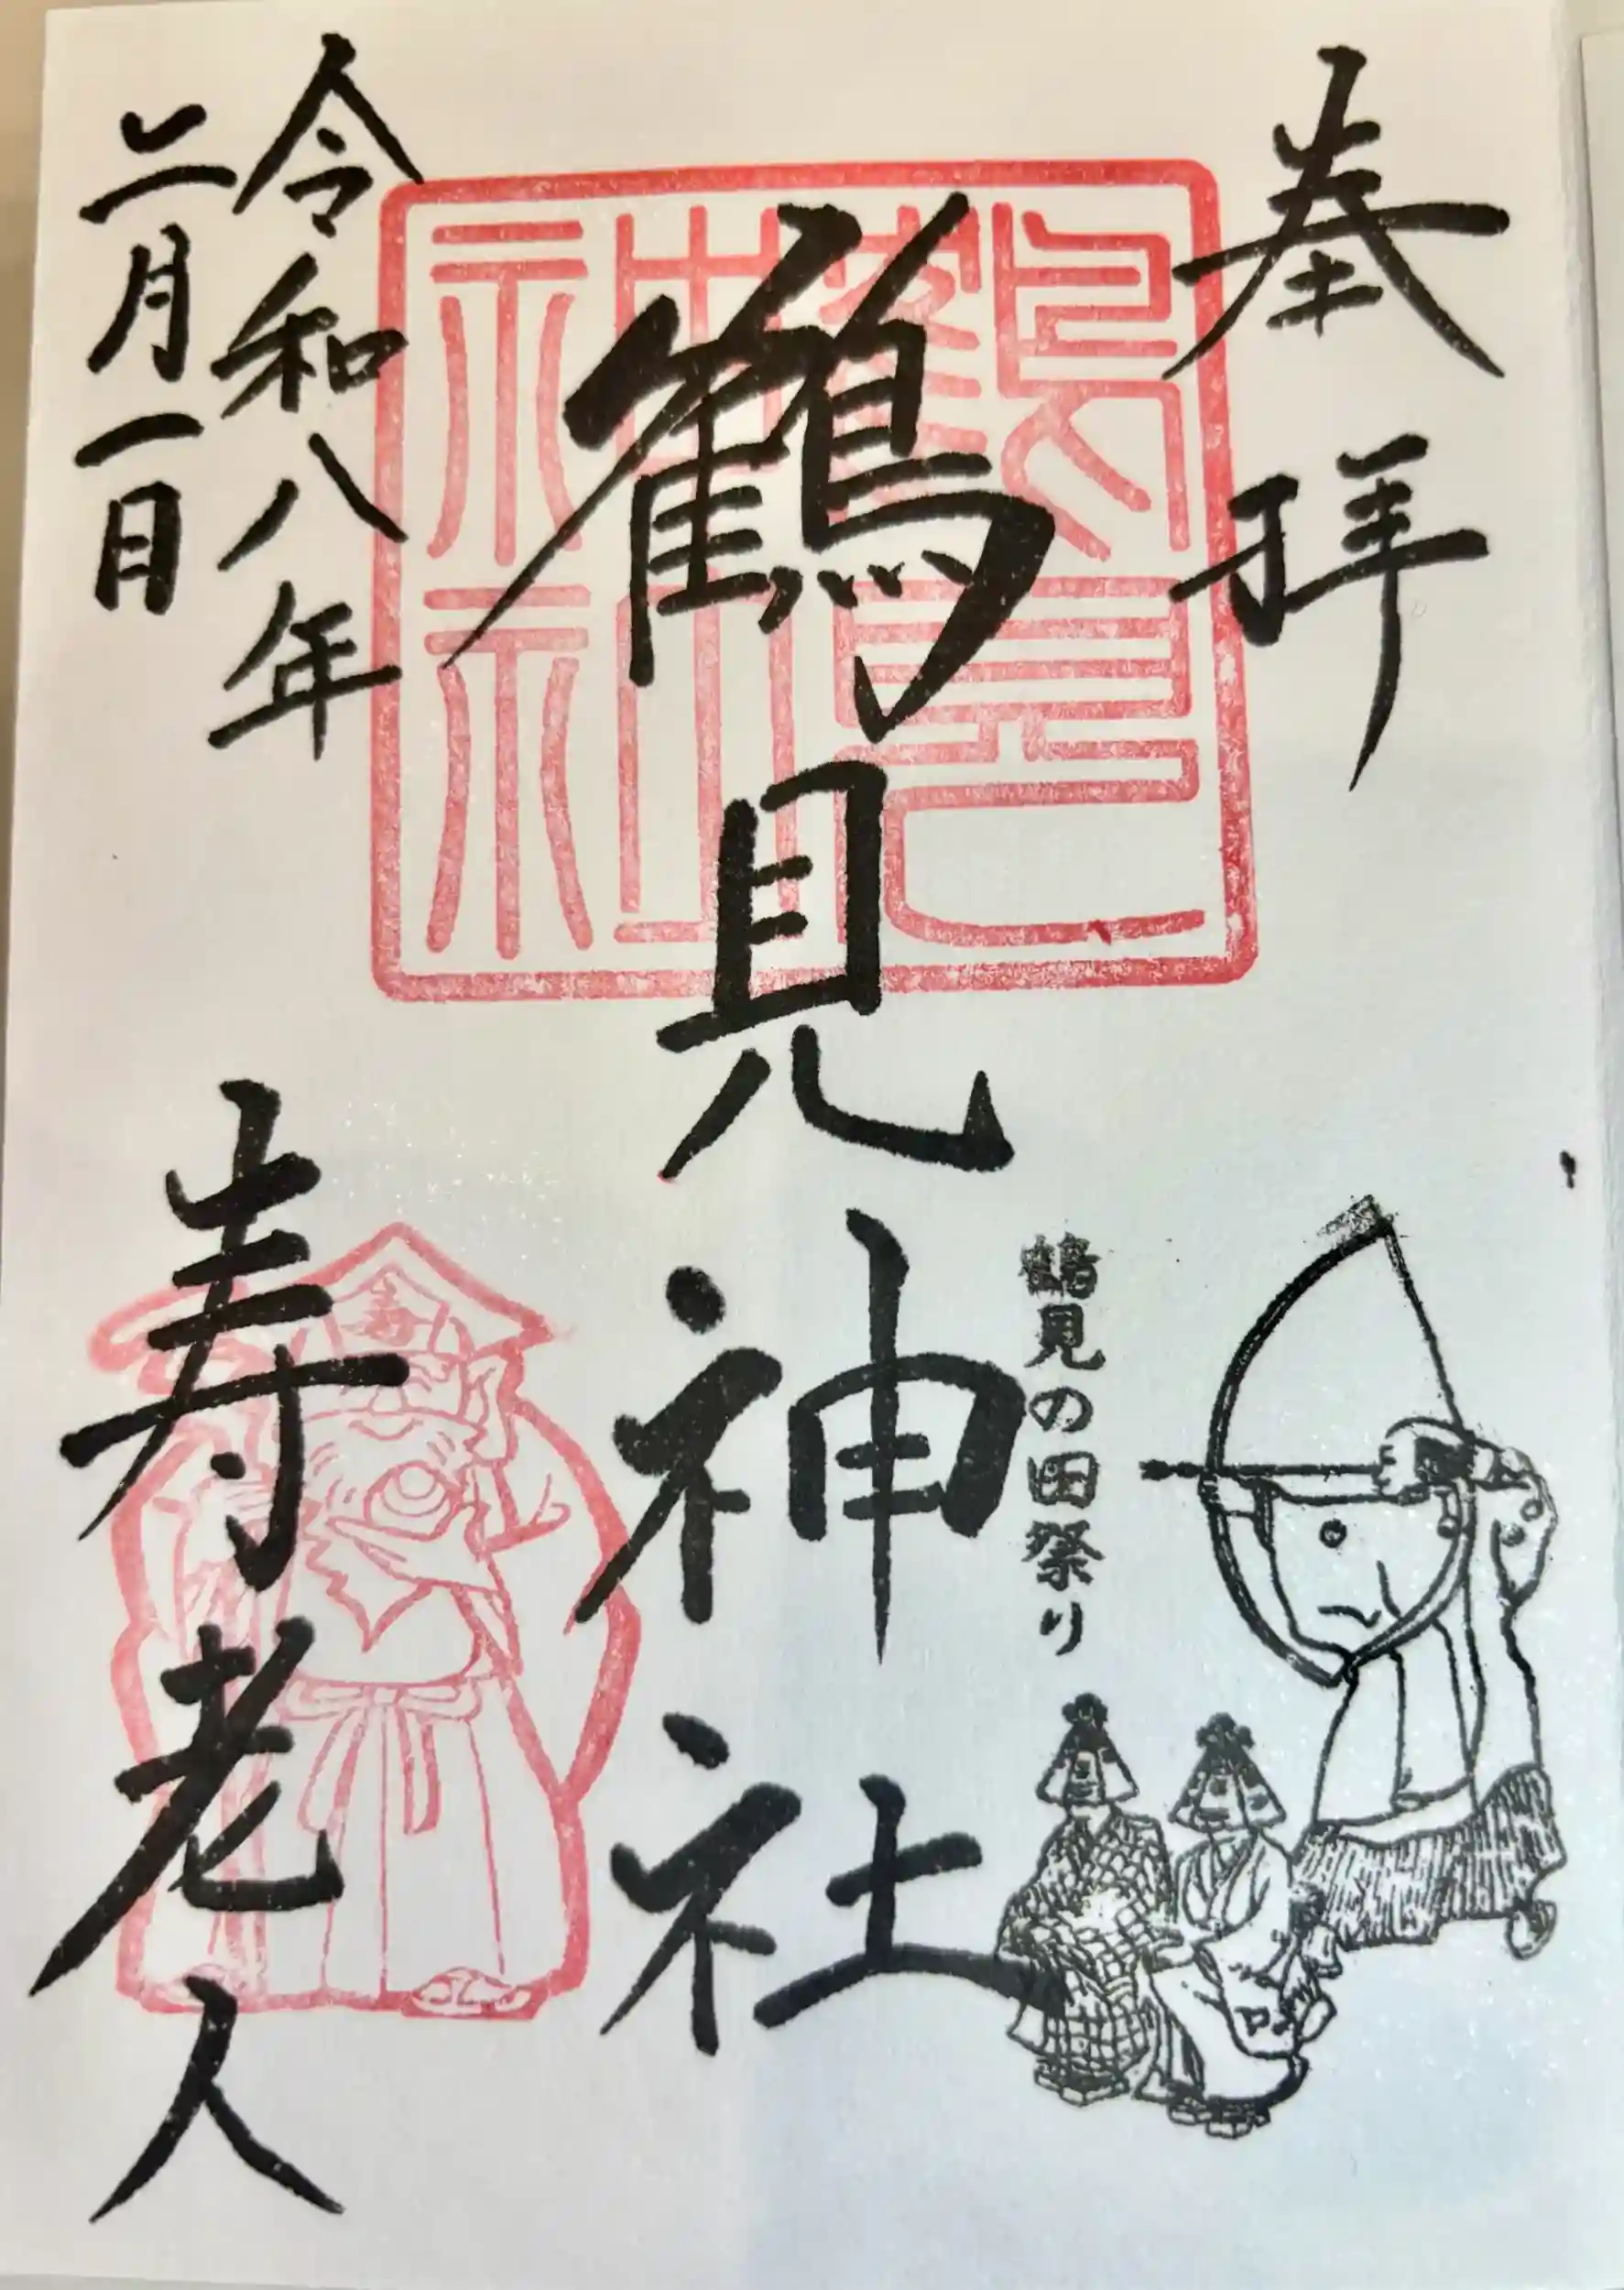 奉拝
鶴見神社
鶴見神社
鶴見の田祭り
令和八年
二月一日
寿老人
寿